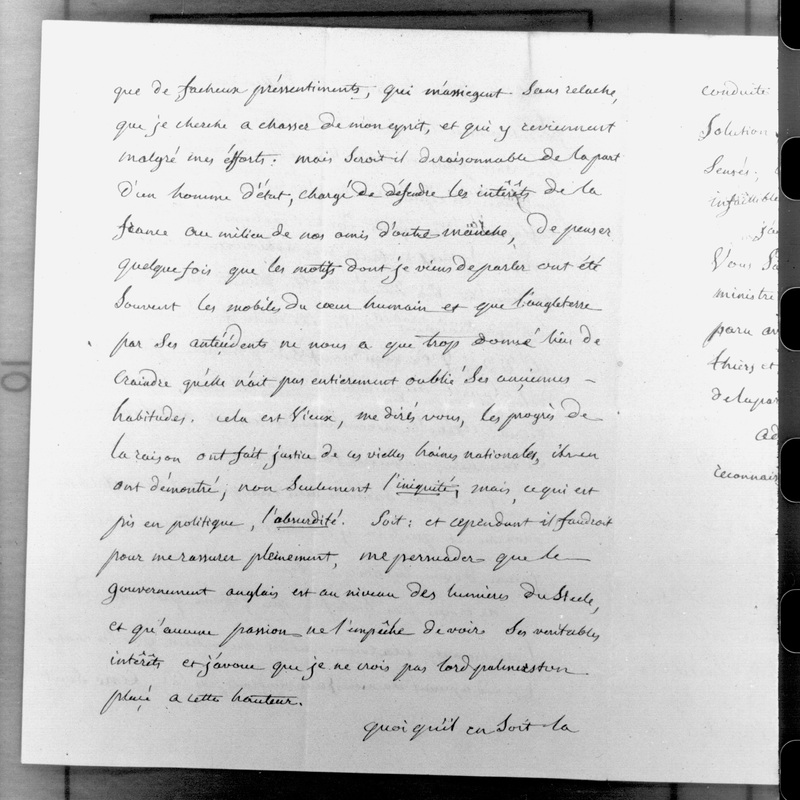 que de facheux préssentiments, qui m'assiegent sans relache,
que je cherche a chasser de mon esprit, et qui y reviennent
malgré mes éfforts. mais seroit il deraisonnable de la part
d'un homme d'état, chargé de défendre les intérêts de la
france au milieu de nos amis d'outre manche, de penser
quelque fois que les motifs dont je viens de parler ont été
souvent les mobiles du cœur humain et que l'angleterre
par ses antécédents ne nous a que trop donné lieu de
craindre qu'elle n'ait pas entierement oublié ses anciennes -
habitudes. cela est vieux, me dirés vous, les progrès de
la raison ont fait justice de ces vielles haines nationales, ils en
ont démontré, non seulement l'iniquité, mais, ce qui est
pis en politique, l'absurdité. Soit: et cependant il faudroit
pour me rassurer pleinement, me persuader que le
gouvernement anglais est au niveau des lumieres du Siecle,
et qu'aucune passion ne l'empêche de voir ses veritables
intérêts et j'avoue que je ne crois pas lord palmerston
placé a cette hauteur.
quoiqu'il en soit la
conduite
Solution
Sensés:
infaillible
Vous
ministre
paru
thiers et
de la
reconnais